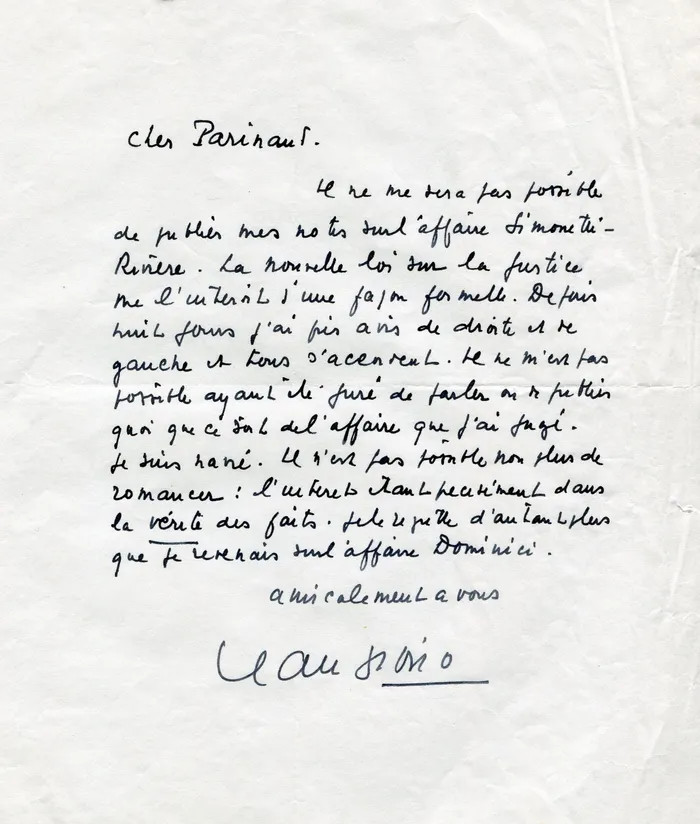 cher Parinaud.
Il ne me sera pas possible
de publier mes notes sur l'affaire Simonetti-
Rivière. La nouvelle loi sur la Justice
me l'interdit d'une façon formelle. Depuis
huit jours j'ai pris avis de droite et de
gauche et tous s'accordent. Il ne m'est pas
possible ayant été juré de parler ou de publier
quoi que ce soit de l'affaire que j'ai jugé.
Je suis navré. Il n'est pas possible non plus de
romancer : l'interet étant precisément dans
la vérité des faits. Je le regrette d'autant plus
que je revenais sur l'affaire Dominici.
amicalement a vous
Jean Giono